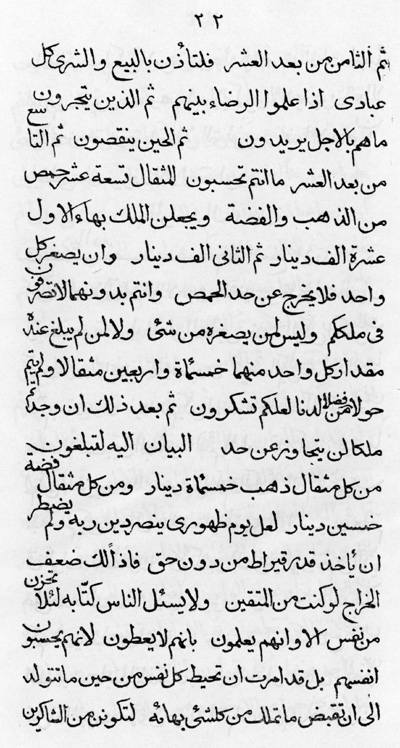 ٢٢
ثم الثامن من بعد العشر فلتأذن بالبيع والشرى كل
عبادى اذا علموا الرضاء بينهم ثم الذين يتجرون
ما هم بالاجل يريدون ثم الحين ينقصون ثم التاسع
من بعد العشر ما انتم تحسبون للمثقال تسعة عشر حمص
من الذهب والفضة ويجعلن الملك بهاء الاول
عشرة الف دينار ثم الثانى الف دينار وان يصغر كل
واحد فلا يخرج عن حد الحمص وانتم بدونهما لا تصرفون
فى ملككم وليس لمن يصغره من شئ ولا لمن لم يبلغ عنده
مقدار كل واحد منهما خمسمأة واربعين مثقالا ولم يتم
حولا من فضل لدنا لعلكم تشكرون ثم بعد ذلك ان وجدتم
ملكا لن يتجاوز عن حد البيان اليه لتبلغون
من كل مثقال ذهب خمسمأة دينار ومن كل مثقال فضة
خمسين دينار لعل يوم ظهورى ينصر دين ربه ولم يضطر
ان يأخذ قدر قيراط من دون حق فاذا لك ضعف
الخراج لو كنت من المتقين ولا يسئل الناس كتابه لئلا يحزن
من نفس الا وانهم يعلمون بانهم لا يعطون لانهم يحسبون
انفسهم بل قد امرت ان تحيط كل نفس من حين ما تتولد
الى ان تقبض ما تملك من كلشئ بهائه لتكونن من الشاكرين